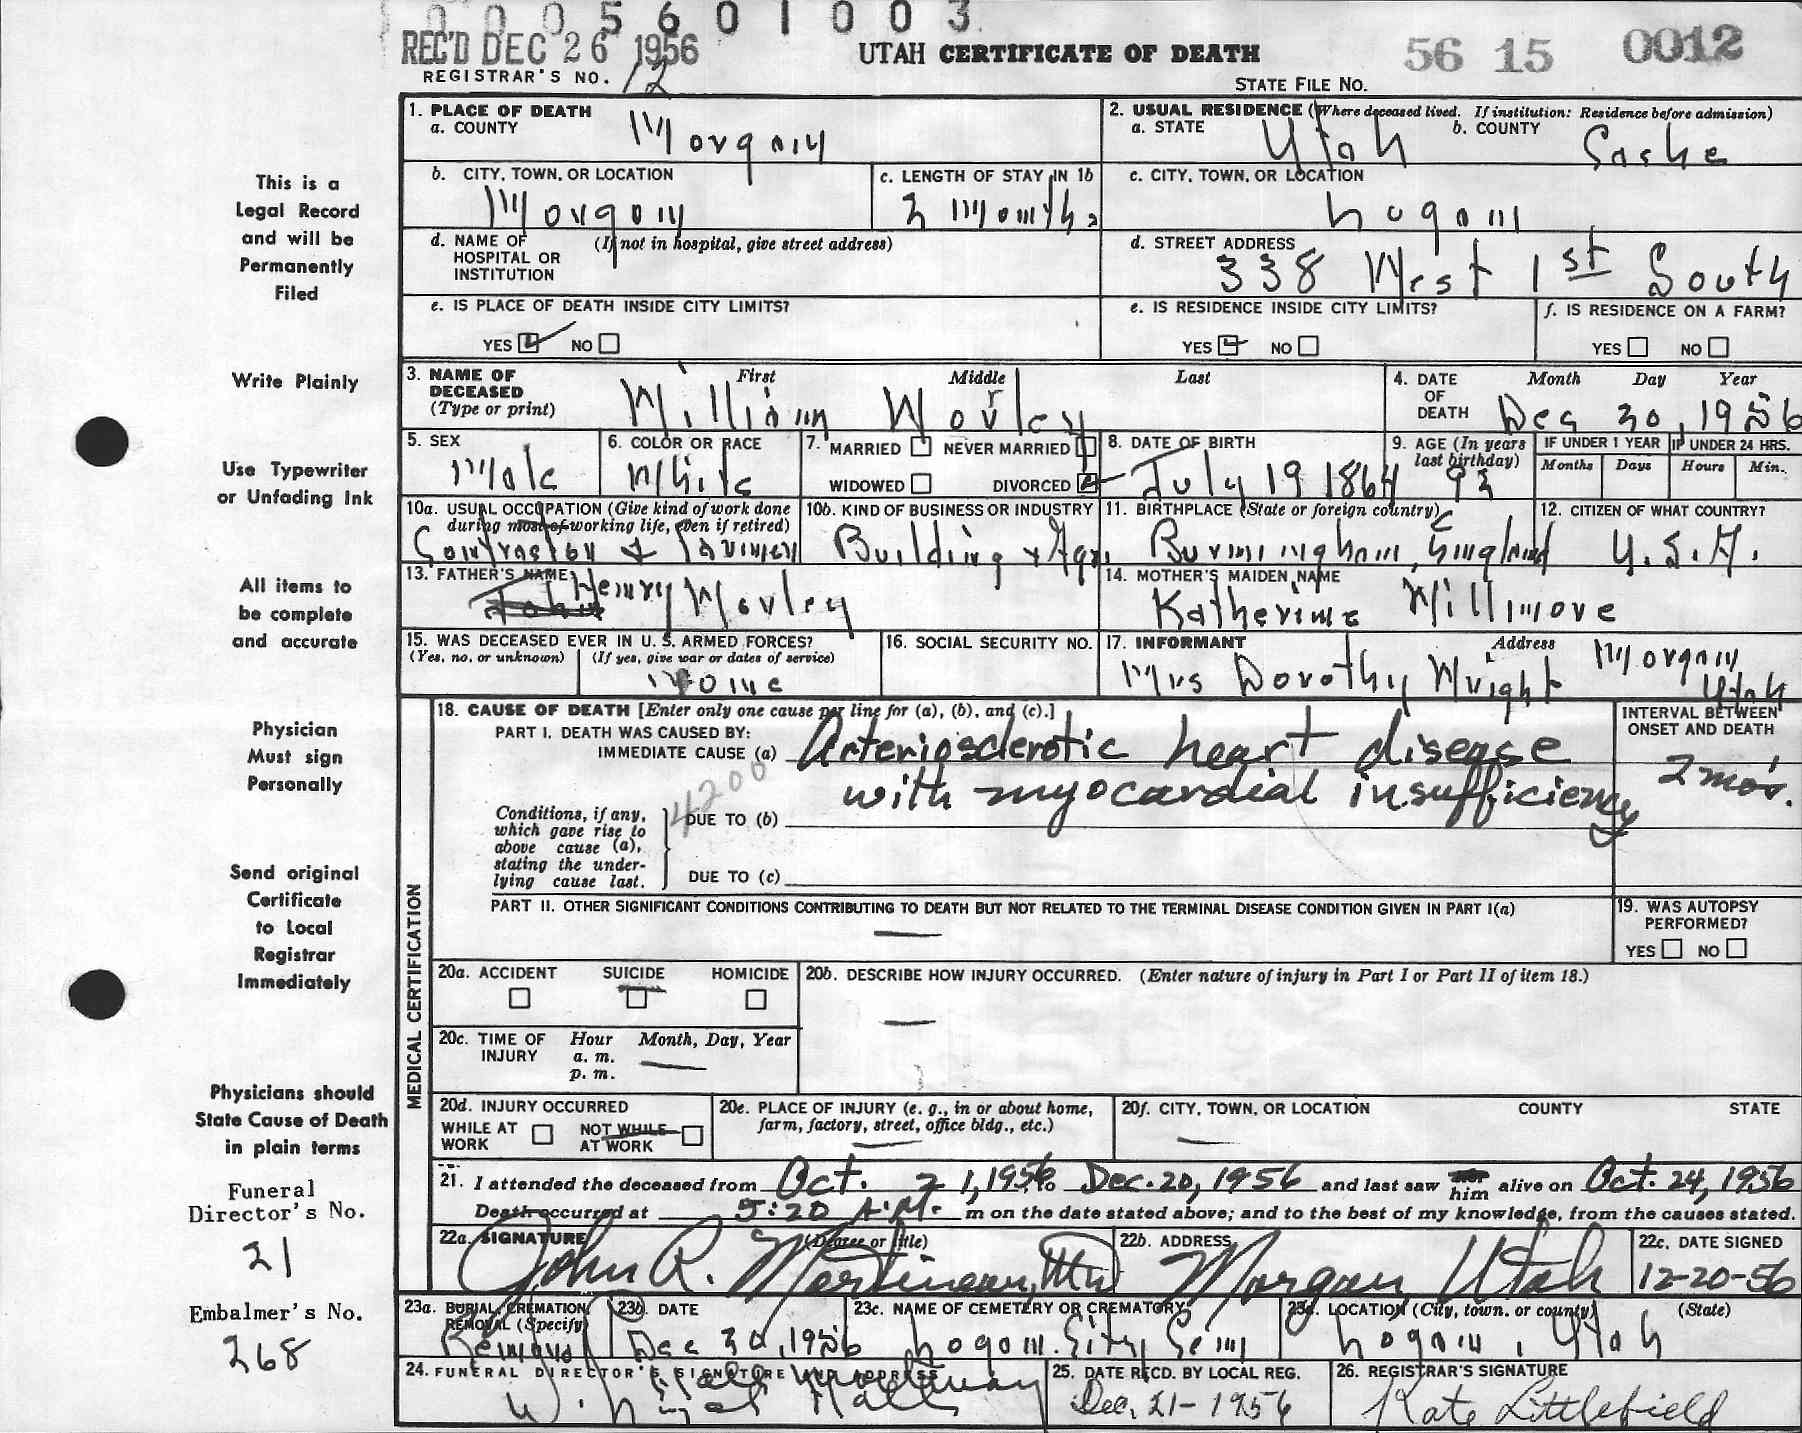 0 0 0 5 6 0 1 0 0 3
REC'D DEC 26 1956
UTAH CERTIFICATE OF DEATH
56 15 0012
REGISTRAR'S NO. 12
STATE FILE NO.
This is a
Legal Record
and will be
Permanently
Filed
Write Plainly
Use Typewriter
or Unfading Ink
All items to
be complete
and accurate
Physician
Must sign
Personally
Send original
Certificate
to Local
Registrar
Immediately
Physicians should
State Cause of Death
in plain terms
Funeral
Director's No.
21
Embalmer's No.
268
1. PLACE OF DEATH
a. COUNTY Morgan
2. USUAL RESIDENCE (Where deceased lived. If institution: Residence before admission)
a. STATE Utah b. COUNTY Cache
b. CITY, TOWN, OR LOCATION
Morgan
c. LENGTH OF STAY IN 1b
2 Months
c. CITY, TOWN, OR LOCATION
Logan
d. NAME OF (If not in hospital, give street address)
HOSPITAL OR
INSTITUTION
d. STREET ADDRESS
338 West 1st South
e. IS PLACE OF DEATH INSIDE CITY LIMITS?
YES NO
e. IS RESIDENCE INSIDE CITY LIMITS?
YES NO
f. IS RESIDENCE ON A FARM?
YES NO
3. NAME OF DECEASED (Type or print)
First Middle Last
William Worley
4. DATE OF DEATH
Month Day Year
Dec 20, 1956
5. SEX
Male
6. COLOR OR RACE
White
7. MARRIED NEVER MARRIED
WIDOWED DIVORCED
8. DATE OF BIRTH
July 19 1864
9. AGE (In years last birthday)
92
IF UNDER 1 YEAR IF UNDER 24 HRS.
Months Days Hours Min.
10a. USUAL OCCUPATION (Give kind of work done
during most of working life, even if retired)
Contractor & Farmer
10b. KIND OF BUSINESS OR INDUSTRY
Building & Agr.
11. BIRTHPLACE (State or foreign country)
Burmingham, England
12. CITIZEN OF WHAT COUNTRY?
U.S.A.
13. FATHER'S NAME
Henry Worley
14. MOTHER'S MAIDEN NAME
Katherine Willmore
15. WAS DECEASED EVER IN U. S. ARMED FORCES?
(Yes, no, or unknown) (If yes, give war or dates of service)
None
16. SOCIAL SECURITY NO.
17. INFORMANT Address
Mrs Dorothy Wright Morgan
Utah
MEDICAL CERTIFICATION
18. CAUSE OF DEATH [Enter only one cause per line for (a), (b), and (c).]
INTERVAL BETWEEN
ONSET AND DEATH
PART I. DEATH WAS CAUSED BY:
IMMEDIATE CAUSE (a) Arteriosclerotic heart disease
with myocardial insufficiency
2 mos.
4200
Conditions, if any,
which gave rise to
above cause (a),
stating the under-
lying cause last.
DUE TO (b)
DUE TO (c)
PART II. OTHER SIGNIFICANT CONDITIONS CONTRIBUTING TO DEATH BUT NOT RELATED TO THE TERMINAL DISEASE CONDITION GIVEN IN PART I(a)
19. WAS AUTOPSY
PERFORMED?
YES NO
20a. ACCIDENT SUICIDE HOMICIDE
20b. DESCRIBE HOW INJURY OCCURRED. (Enter nature of injury in Part I or Part II of item 18.)
20c. TIME OF INJURY
Hour Month, Day, Year
a. m.
p. m.
20d. INJURY OCCURRED
WHILE AT WORK NOT WHILE AT WORK
20e. PLACE OF INJURY (e. g., in or about home,
farm, factory, street, office bldg., etc.)
20f. CITY, TOWN, OR LOCATION COUNTY STATE
21. I attended the deceased from Oct. 21, 1956 to Dec. 20, 1956 and last saw him alive on Oct. 24, 1956
Death occurred at 5:20 A.M. m on the date stated above; and to the best of my knowledge, from the causes stated.
22a. SIGNATURE (Degree or title)
John R. Martineau, MD
22b. ADDRESS
Morgan, Utah
22c. DATE SIGNED
12-20-56
23a. BURIAL, CREMATION
REMOVAL (Specify)
Removal
23b. DATE
Dec 20, 1956
23c. NAME OF CEMETERY OR CREMATORY
Logan City Cem
23d. LOCATION (City, town. or county) (State)
Logan, Utah
24. FUNERAL DIRECTOR'S SIGNATURE AND ADDRESS
25. DATE RECD. BY LOCAL REG.
Dec. 21-1956
26. REGISTRAR'S SIGNATURE
Kate Littlefield